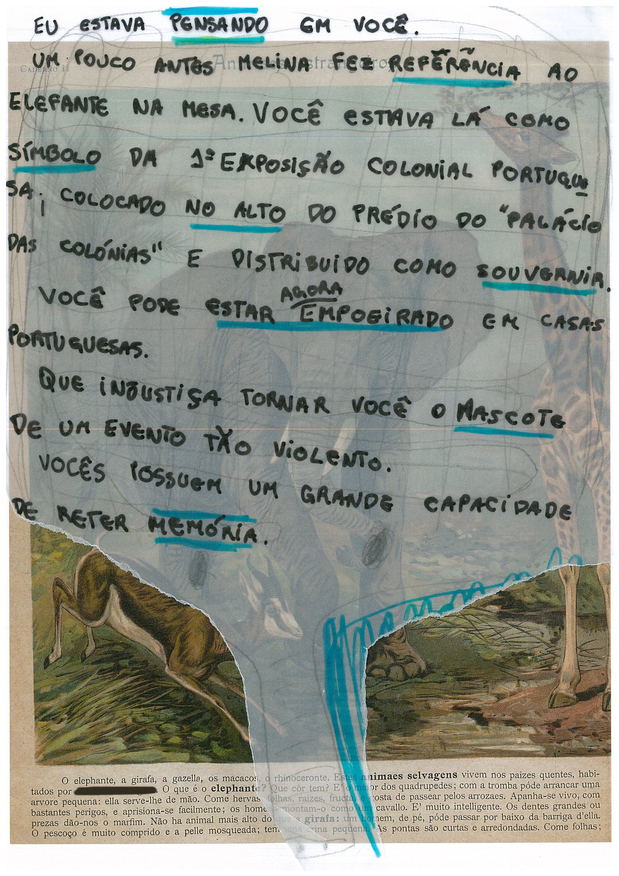 EU ESTAVA PENSANDO EM VOCÊ.
UM POUCO ANTES MELINA FEZ REFERÊNCIA AO
ELEFANTE NA MESA. VOCÊ ESTAVA LÁ COMO
SÍMBOLO DA 1ª EXPOSIÇÃO COLONIAL PORTUGUE
SA; COLOCADO NO ALTO DO PRÉDIO DO "PALÁCIO
DAS COLÓNIAS" E DISTRIBUIDO COMO SOUVERNIR.
AGORA
VOCÊ PODE ESTAR EMPOEIRADO EM CASAS
PORTUGUESAS.
QUE INJUSTIÇA TORNAR VOCÊ O MASCOTE
DE UM EVENTO TÃO VIOLENTO.
VOCÊS POSSUEM UM GRANDE CAPACIDADE
DE RETER MEMÓRIA.
O elephante, a girafa, a gazella, os macacos, o rhinoceronte. Estes animaes selvagens vivem nos paizes quentes, habi-
tados por O que é o elephante? Que côr tem? E' o maior dos quadrupedes; com a tromba póde arrancar uma
arvore pequena: ella serve-lhe de mão. Come hervas, folhas, raizes, gosta de passear pelos arrozaes. Apanha-se vivo, com
bastantes perigos, e aprisiona-se facilmente; os homens montam-o como cavallo. E' muito intelligente. Os dentes grandes ou
prezas dão-nos o marfim. Não ha animal mais alto do girafa; um homem, de pé, póde passar por baixo da barriga d'ella.
O pescoço é muito comprido e a pelle mosqueada; tem uma crina pequena. As pontas são curtas e arredondadas. Come folhas;